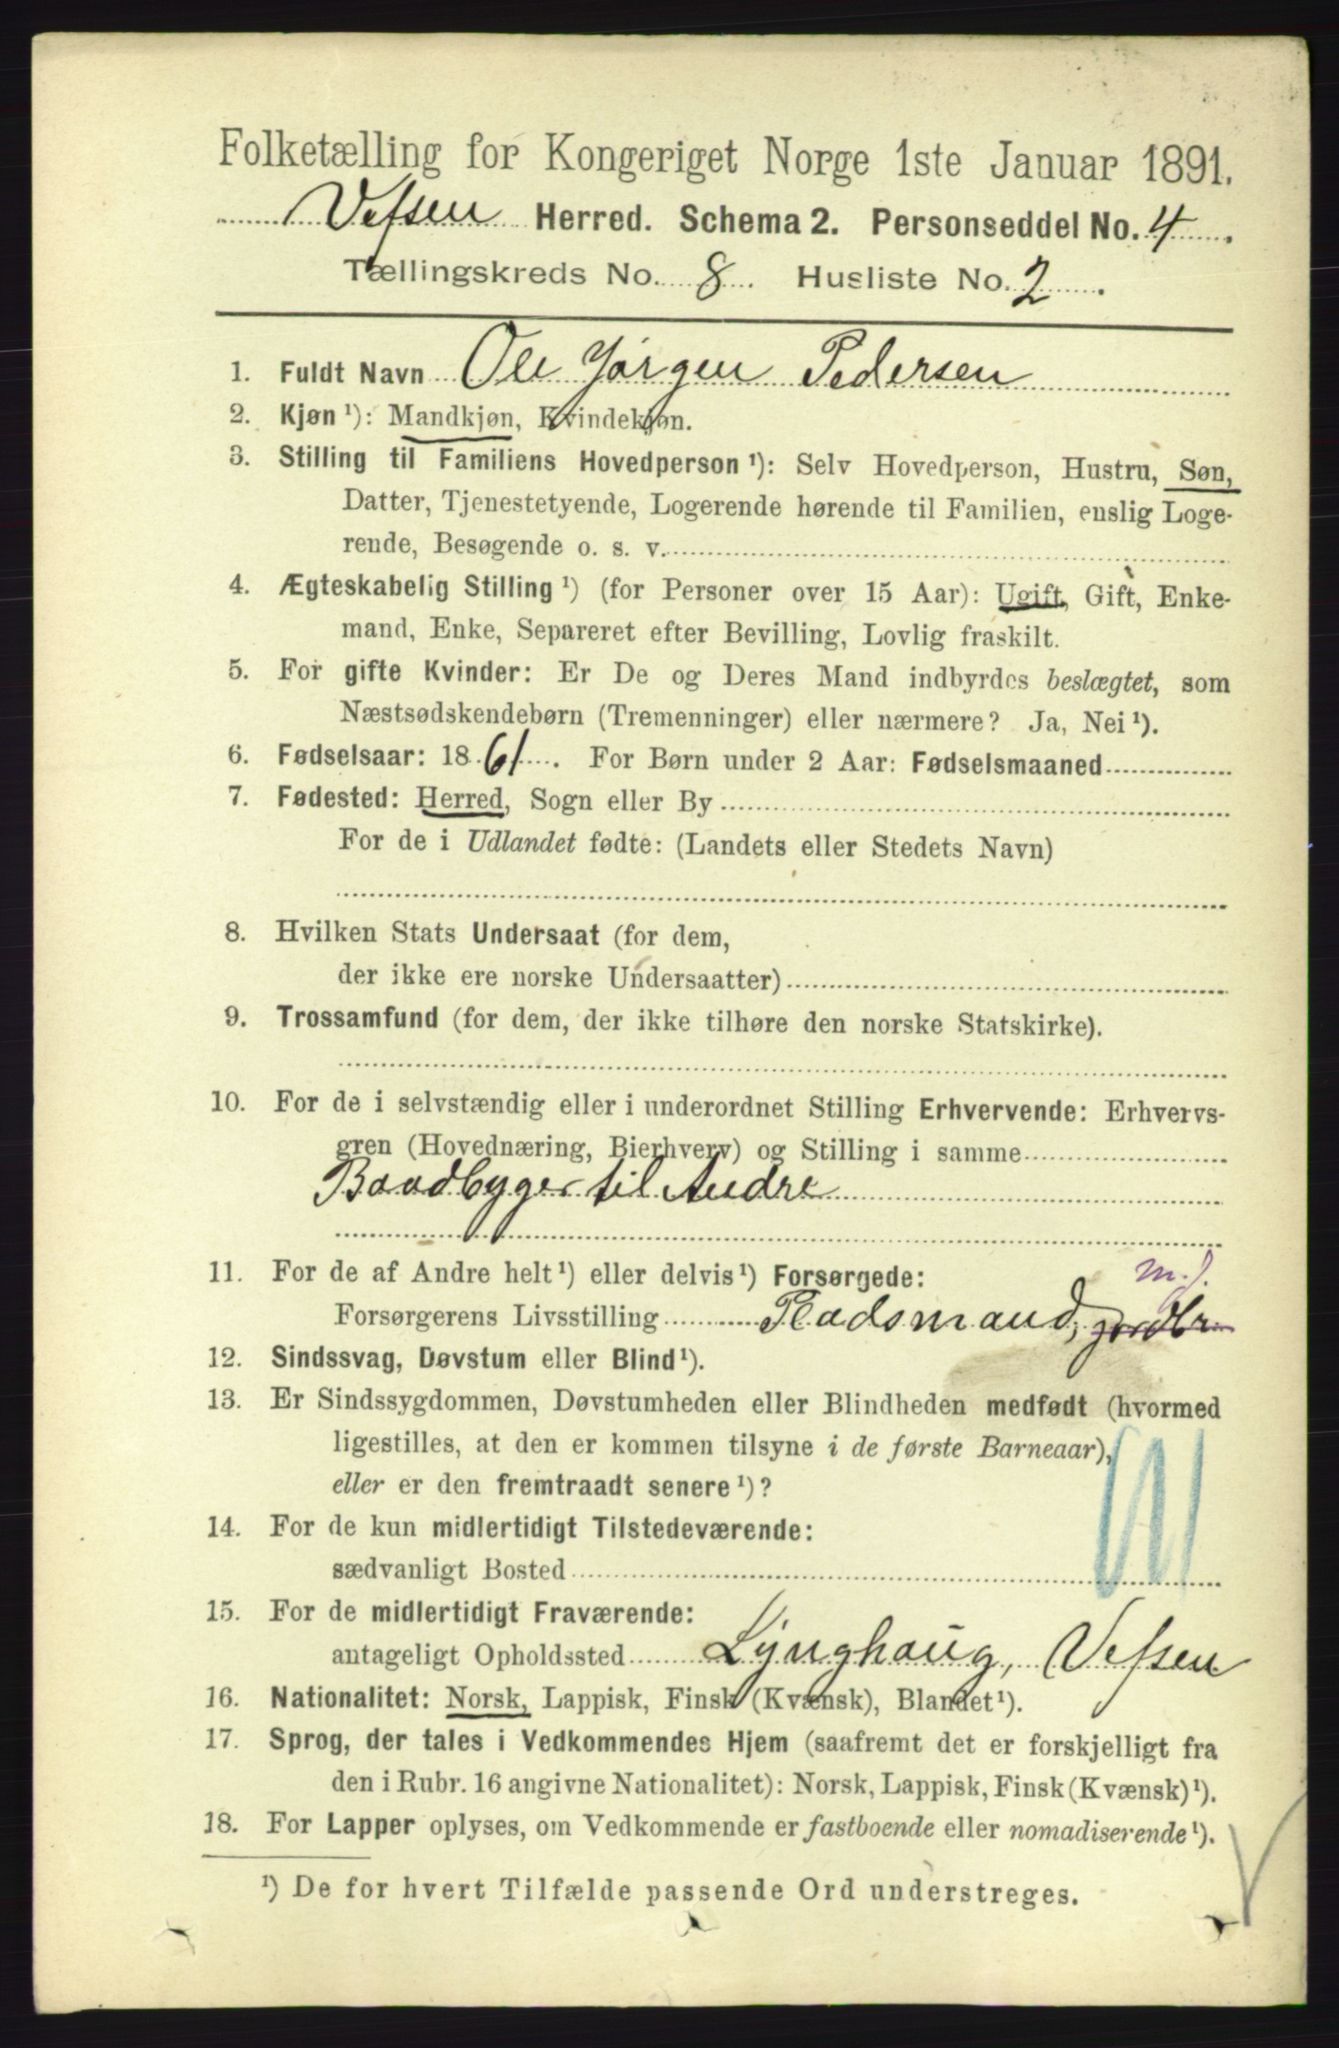 Folketælling for Kongeriget Norge 1ste Januar 1891.
Vefsen Herred. Schema 2. Personseddel No. 4.
Tællingskreds No. 8. Husliste No. 2.
1. Fuldt Navn Ole Jørgen Pedersen
2. Kjøn ¹): Mandkjøn, Kvindekjøn.
3. Stilling til Familiens Hovedperson ¹): Selv Hovedperson, Hustru, Søn,
Datter, Tjenestetyende, Logerende hørende til Familien, enslig Loge-
rende, Besøgende o. s. v.
4. Ægteskabelig Stilling ¹) (for Personer over 15 Aar): Ugift, Gift, Enke-
mand, Enke, Separeret efter Bevilling, Lovlig fraskilt.
5. For gifte Kvinder: Er De og Deres Mand indbyrdes beslægtet, som
Næstsødskendebørn (Tremenninger) eller nærmere? Ja, Nei ¹).
6. Fødselsaar: 1861. For Børn under 2 Aar: Fødselsmaaned
7. Fødested: Herred, Sogn eller By
For de i Udlandet fødte: (Landets eller Stedets Navn)
8. Hvilken Stats Undersaat (for dem,
der ikke ere norske Undersaatter)
9. Trossamfund (for dem, der ikke tilhøre den norske Statskirke).
10. For de i selvstændig eller i underordnet Stilling Erhvervende: Erhvervs-
gren (Hovednæring, Bierhverv) og Stilling i samme
Baadbyger til Andre
11. For de af Andre helt ¹) eller delvis ¹) Forsørgede: m.j.
Forsørgerens Livsstilling Pladsmand,
12. Sindssvag, Døvstum eller Blind ¹).
13. Er Sindssygdommen, Døvstumheden eller Blindheden medfødt (hvormed
ligestilles, at den er kommen tilsyne i de første Barneaar),
eller er den fremtraadt senere ¹)?
14. For de kun midlertidigt Tilstedeværende:
sædvanligt Bosted
15. For de midlertidigt Fraværende:
antageligt Opholdssted Lynghaug, Vefsen
16. Nationalitet: Norsk, Lappisk, Finsk (Kvænsk), Blandet ¹).
17. Sprog, der tales i Vedkommendes Hjem (saafremt det er forskjelligt fra
den i Rubr. 16 angivne Nationalitet): Norsk, Lappisk, Finsk (Kvænsk) ¹).
18. For Lapper oplyses, om Vedkommende er fastboende eller nomadiserende ¹).
¹) De for hvert Tilfælde passende Ord understreges.